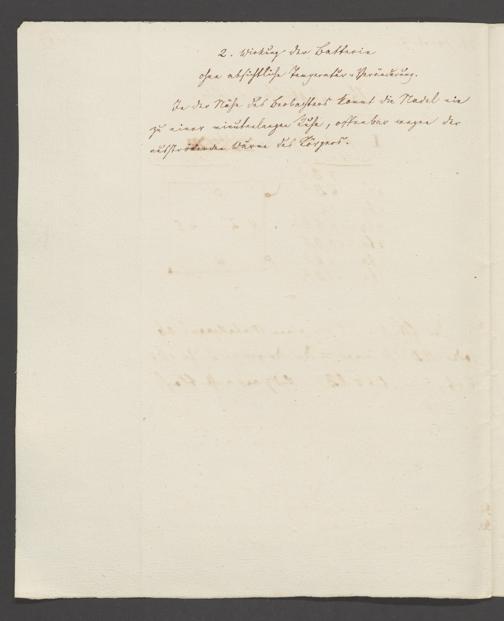 2. Wirkung der Batterie
ohne absichtliche Temperatur-Veränderung.
In der Nähe des Beobachters kommt die Nadel nie
zu einer minutenlangen Ruhe, offenbar wegen der
ausströmenden Wärme des Körpers.